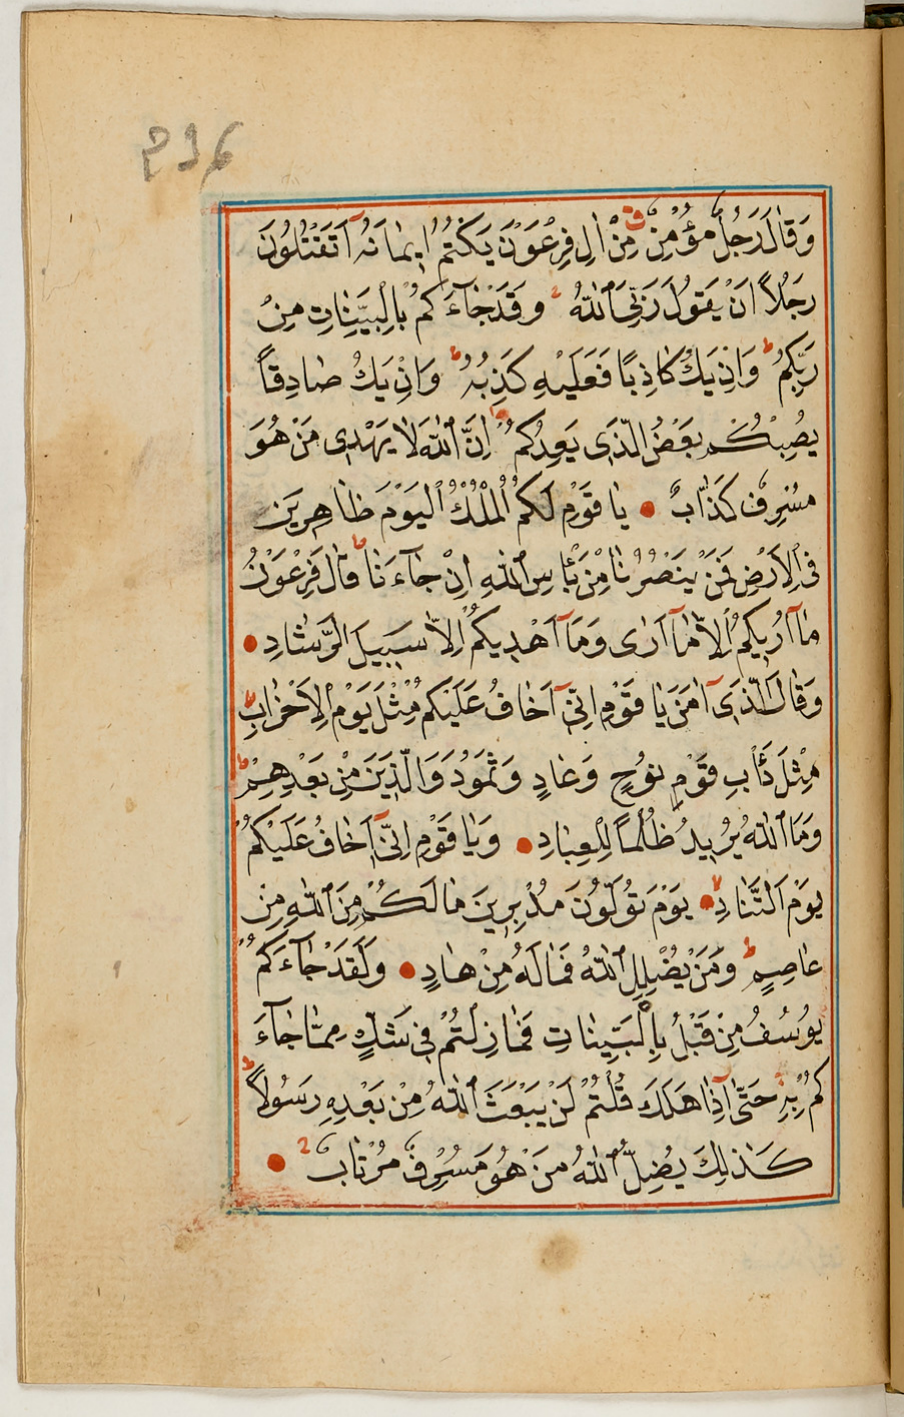 وَقَالَ رَجُلٌ مُؤْمِنٌ مِنْ اٰلِ فِرْعَوْنَ يَكْتُمُ اِيمَانَهُ اَتَقْتُلُونَ
رَجُلاً اَنْ يَقُولَ رَبِّىَ اللّٰهُ وَقَدْ جَاۤءَكُمْ بِالْبَيِّنَاتِ مِنْ
رَبِّكُمْ ط وَاِنْ يَكُ كَاذِبًا فَعَلَيْهِ كَذِبُهُ ط وَاِنْ يَكُ صَادِقاً
يُصِبْكُمْ بَعْضُ الَّذِى يَعِدُكُمْ ط اِنَّ اللّٰهَ لَا يَهْدِى مَنْ هُوَ
مُسْرِفٌ كَذَّابٌ يَا قَوْمِ لَكُمُ الْمُلْكُ الْيَوْمَ ظَاهِرِينَ
فِى الْاَرْضِ فَمَنْ يَنْصُرُنَا مِنْ بَأْسِ اللّٰهِ اِنْ جَاۤءَنَا ط قَالَ فِرْعَوْنُ
مَاۤ اُرِيكُمْ اِلَّا مَاۤ اَرٰى وَمَاۤ اَهْدِيكُمْ اِلَّا سَبِيلَ الرَّشَادِ
وَقَالَ الَّذِىۤ اٰمَنَ يَا قَوْمِ اِنِّىۤ اَخَافُ عَلَيْكُمْ مِثْلَ يَوْمِ الْاَحْزَابِ لا
مِثْلَ دَأْبِ قَوْمِ نُوحٍ وَعَادٍ وَثَمُودَ وَالَّذِينَ مِنْ بَعْدِهِمْ ط
وَمَا اللّٰهُ يُرِيدُ ظُلْماً لِلْعِبَادِ وَيَا قَوْمِ اِنِّىۤ اَخَافُ عَلَيْكُمْ
يَوْمَ التَّنَادِ لا يَوْمَ تُوَلُّونَ مُدْبِرِينَ مَا لَكُمْ مِنَ اللّٰهِ مِنْ
عَاصِمٍ ط وَمَنْ يُضْلِلِ اللّٰهُ فَمَا لَهُ مِنْ هَادٍ وَلَقَدْ جَاۤءَكُمْ
يُوسُفُ مِنْ قَبْلُ بِالْبَيِّنَاتِ فَمَا زِلْتُمْ فِى شَكٍّ مِمَّا جَاۤءَ
كُمْ بِهِ ط حَتّٰىۤ اِذَا هَلَكَ قُلْتُمْ لَنْ يَبْعَثَ اللّٰهُ مِنْ بَعْدِهِ رَسُولاً ط
كَذٰلِكَ يُضِلُّ اللّٰهُ مَنْ هُوَ مُسْرِفٌ مُرْتَابٌ